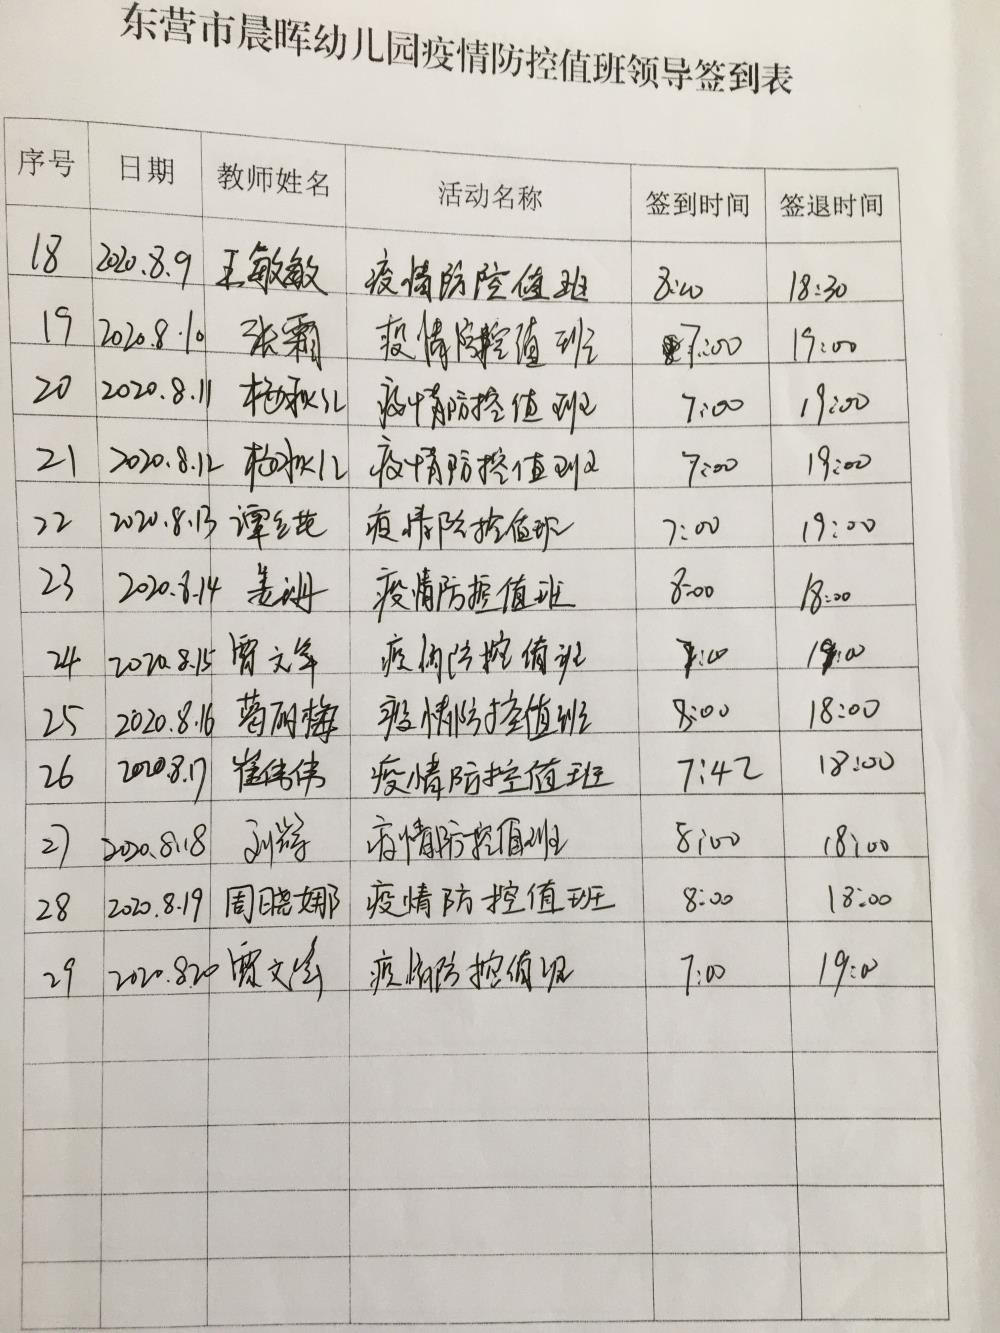 东营市晨晖幼儿园疫情防控值班领导签到表
序号 日期 教师姓名 活动名称 签到时间 签退时间
18 2020.8.9 王敏敏 疫情防控值班 8:00 18:30
19 2020.8.10 张霜 疫情防控值班 7:00 19:00
20 2020.8.11 杨秋红 疫情防控值班 7:00 19:00
21 2020.8.12 杨秋红 疫情防控值班 7:00 19:00
22 2020.8.13 谭 疫情防控值班 7:00 19:00
23 2020.8.14 姜珊 疫情防控值班 8:00 18:00
24 2020.8.15 贾文 疫情防控值班 :00 19:00
25 2020.8.16 葛丽梅 疫情防控值班 8:00 18:00
26 2020.8.17 崔伟伟 疫情防控值班 7:42 18:00
27 2020.8.18 刘 疫情防控值班 8:00 18:00
28 2020.8.19 周晓娜 疫情防控值班 8:00 18:00
29 2020.8.20 贾文 疫情防控值班 7:00 19:00